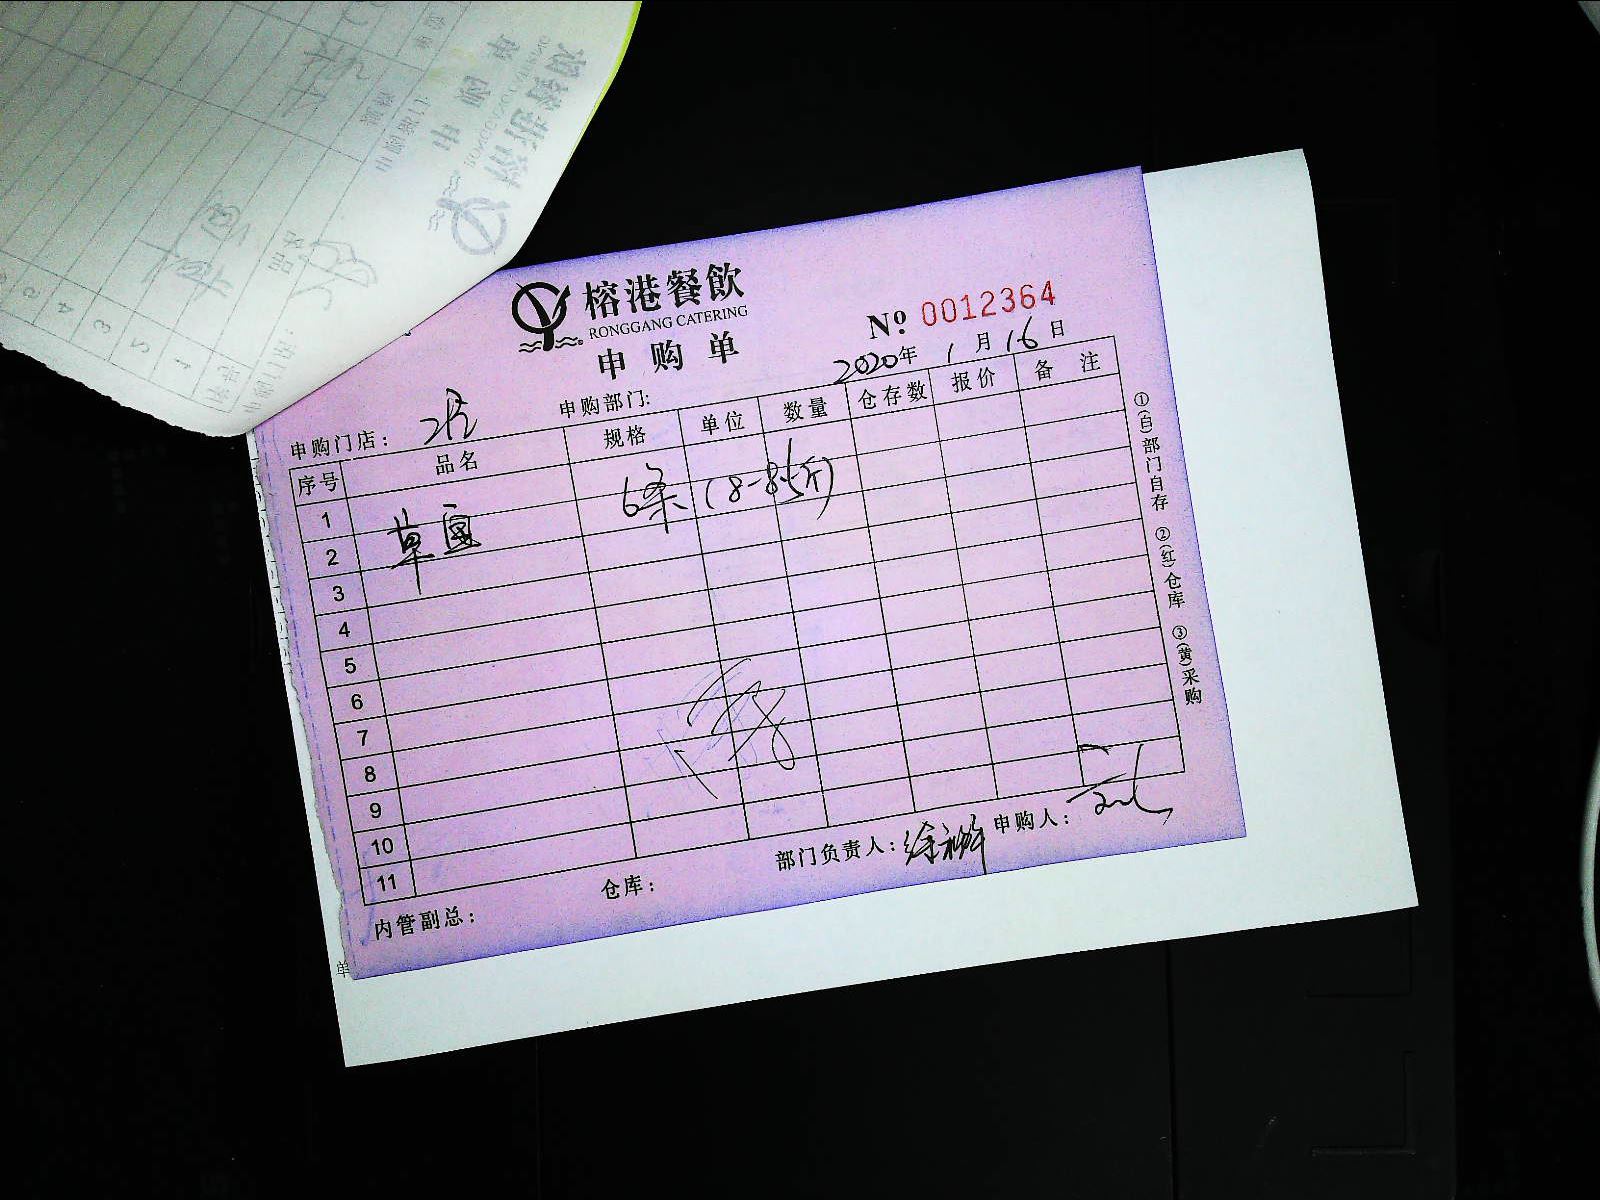 榕港餐飲
RONGGANG CATERING
申购单
№ 0012364
2020年 1月 16日
申购门店：
申购部门:
序号 品名 规格 单位 数量 仓存数 报价 备注
1
2 草 6条 (8-8.5斤)
3
4
5
6
7
8
9
10
11
内管副总：
仓库：
部门负责人：徐
申购人：
①(白)部门自存 ②(红)仓库 ③(黄)采购
单